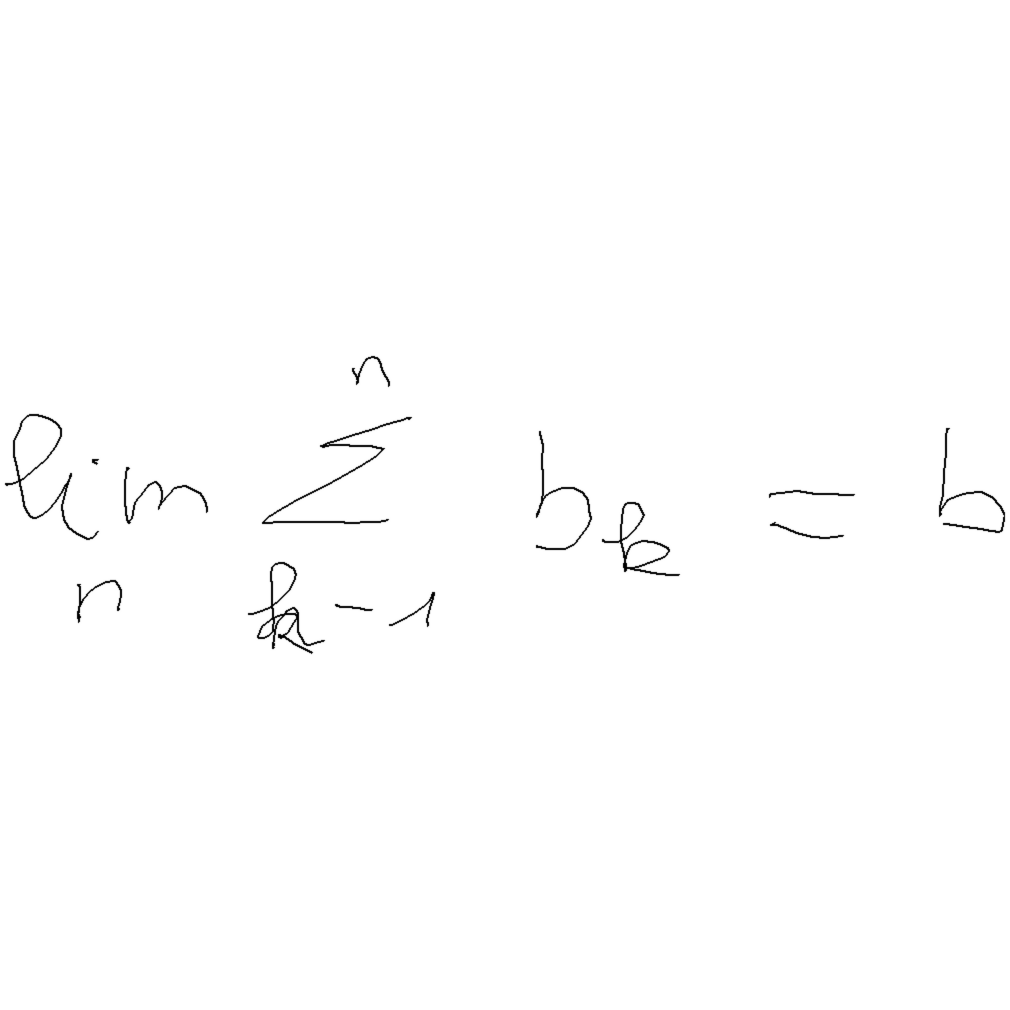 \lim_{n} \sum_{k-1}^{n} b_{k} = b